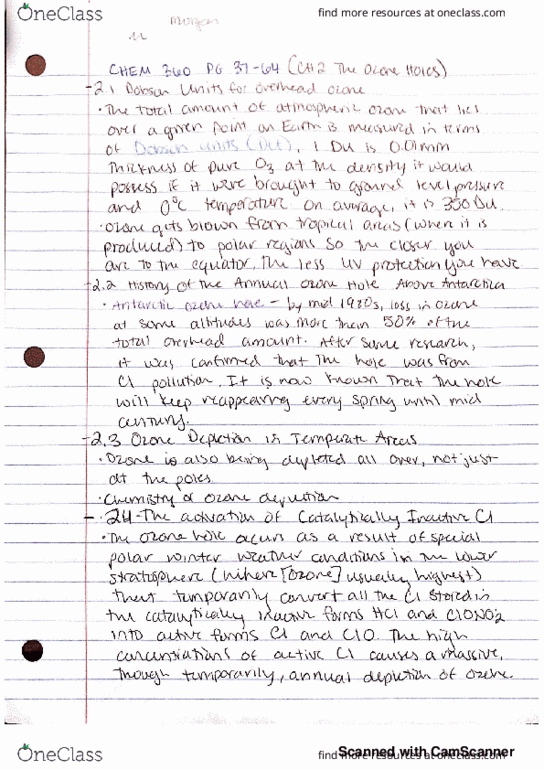 OneClass
find more resources at oneclass.com
morgan
CHEM 360 PG 37-64 (CH2 The Ozone Holes)
-2.1 Dobson Units for overhead ozone
• The total amount of atmospheric ozone that lies
over a given point on Earth is measured in terms
of Dobson units (DU), 1 DU is 0.01mm
thickness of pure O3 at the density it would
possess if it were brought to ground level pressure
and 0°C temperature on average, it is 350 DU.
• ozone gets blown from tropical areas (when it is
produced) to polar regions so the closer you
are to the equator, the less UV protection you have
-2.2 History of the Annual Ozone Hole Above Antarctica
• Antarctic ozone hole - by mid 1980s, loss in ozone
at some altitudes was more then 50% of the
total overhead amount. After some research,
it was confirmed that the hole was from
Cl pollution. It is now known that the hole
will keep reappearing every spring until mid
century.
-2.3 Ozone Depletion in Temperate Areas
• Ozone is also being depleted all over, not just
at the poles
• Chemistry of Ozone depletion
- 2.4 - The activation of Catalytically Inactive Cl
• The ozone hole occurs as a result of special
polar winter weather conditions in the lower
stratosphere (where [ozone] usually highest)
that temporarily convert all the Cl stored in
the catalytically inactive forms HCl and ClONO2
into active forms Cl and ClO. The high
concentrations of active Cl causes a massive,
though temporarily, annual depletion of ozone.
OneClass
find more resources at oneclass.com
Scanned with CamScanner